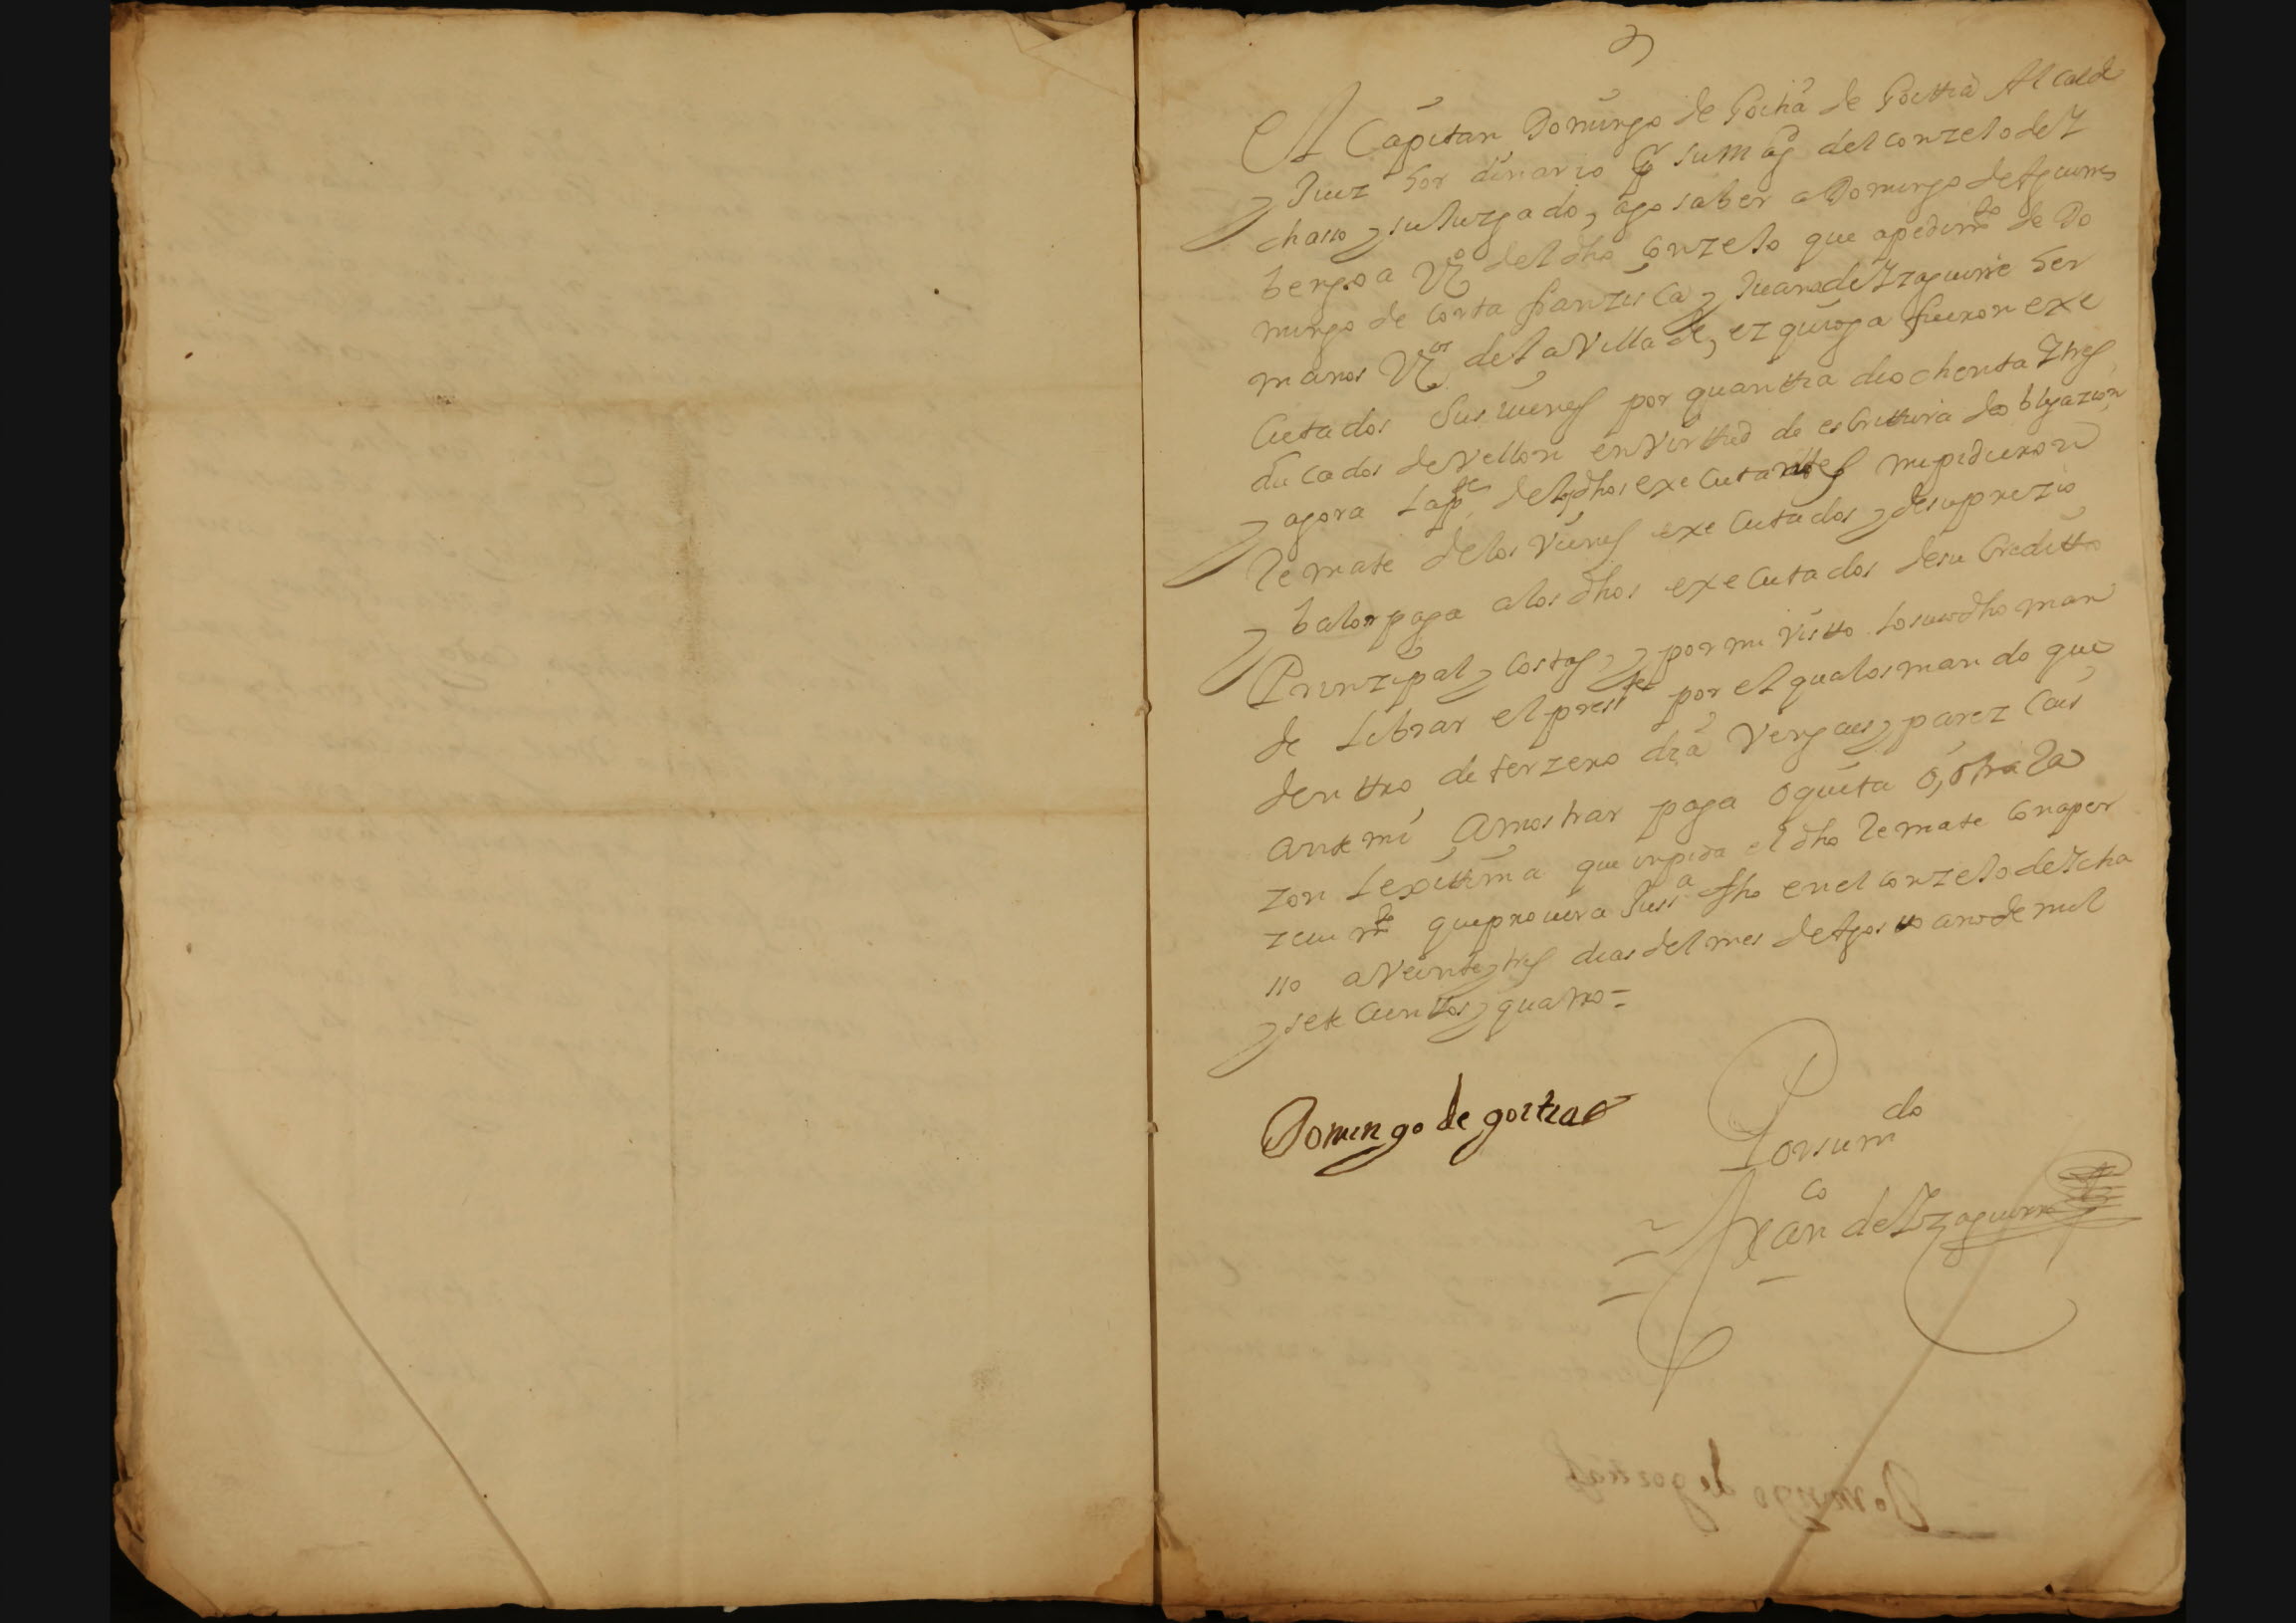 El Capitan Domingo de Goitia de Goittia Alcalde
y Juez hordinario por su Magd del conzejo de Y
chasso y su Juzgado, ago saber a Domingo de Aguirres
bengoa Vzo del dho Conzejo que a pedimto de Do
mingo de Corta franzisca y Juana de Yzaguirre her
manos Vzos de la Villa de, ezquioga fueron exe
Cutados Sus uienes por quanttia de ochenta y tres
du cados de Vellon en Virttud de escrittura de obligazion
y agora la pte de los dhos executantes me pidieron
Remate de los Vienes exe Cutados y de su prezio
y balor paga a los dhos executados de su Creditto
Prinzipal y Costas, y por mi Visto lo suso dho man
de Librar el presste por el qual os mando que
denttro de terzero dia Vengais y parezcais
ante mi A mostrar paga o quita o, otra Ra
zon Lexittima que inpida el dho Remate Con aper
zeuimto que proueera Justa fho en el conzejo de Ycha
sso a Veinte y tres dias del mes de Agosto año de mil
y sete Cientos y quatro =
Domingo de goitia
Por su mdo
Franco de Yzaguirre